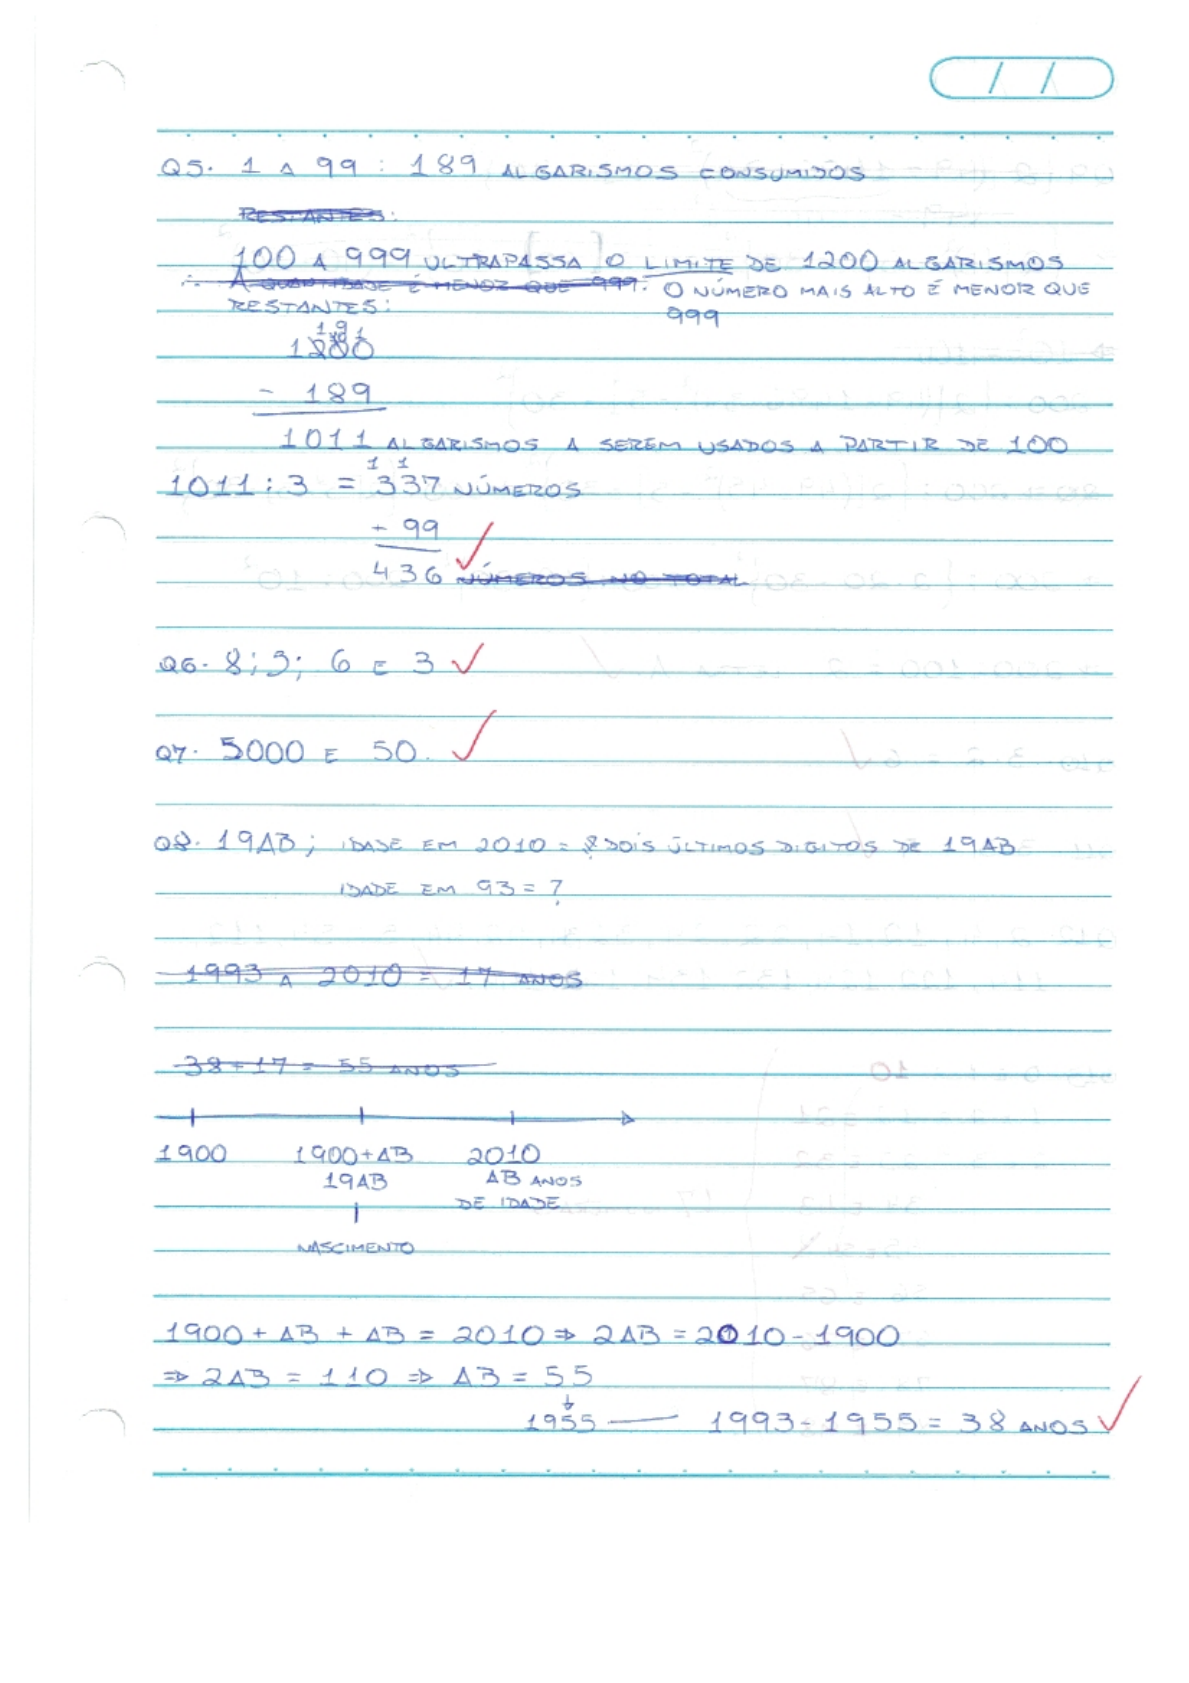 Q5. 1 A 99 : 189 ALGARISMOS CONSUMIDOS
RESTANTES:
100 A 999 ULTRAPASSA O LIMITE DE 1200 ALGARISMOS
∴ A QUANTIDADE É MENOR QUE 999. O NÚMERO MAIS ALTO É MENOR QUE 999
RESTANTES:
1200
- 189
1011 ALGARISMOS A SEREM USADOS A PARTIR DE 100
1 1
1011 : 3 = 337 NÚMEROS
+ 99
436 NÚMEROS NO TOTAL
Q6. 8; 3; 6 E 3
Q7. 5000 E 50.
Q8. 19AB; IDADE EM 2010 = DOIS ÚLTIMOS DIGITOS DE 19AB
IDADE EM 93 = ?
1993 A 2010 = 17 ANOS
38 + 17 = 55 ANOS
1900 1900+AB 2010
19AB AB ANOS
DE IDADE
NASCIMENTO
1900 + AB + AB = 2010 ⇒ 2AB = 2010 - 1900
⇒ 2AB = 110 ⇒ AB = 55
↓
1955 — 1993 - 1955 = 38 ANOS